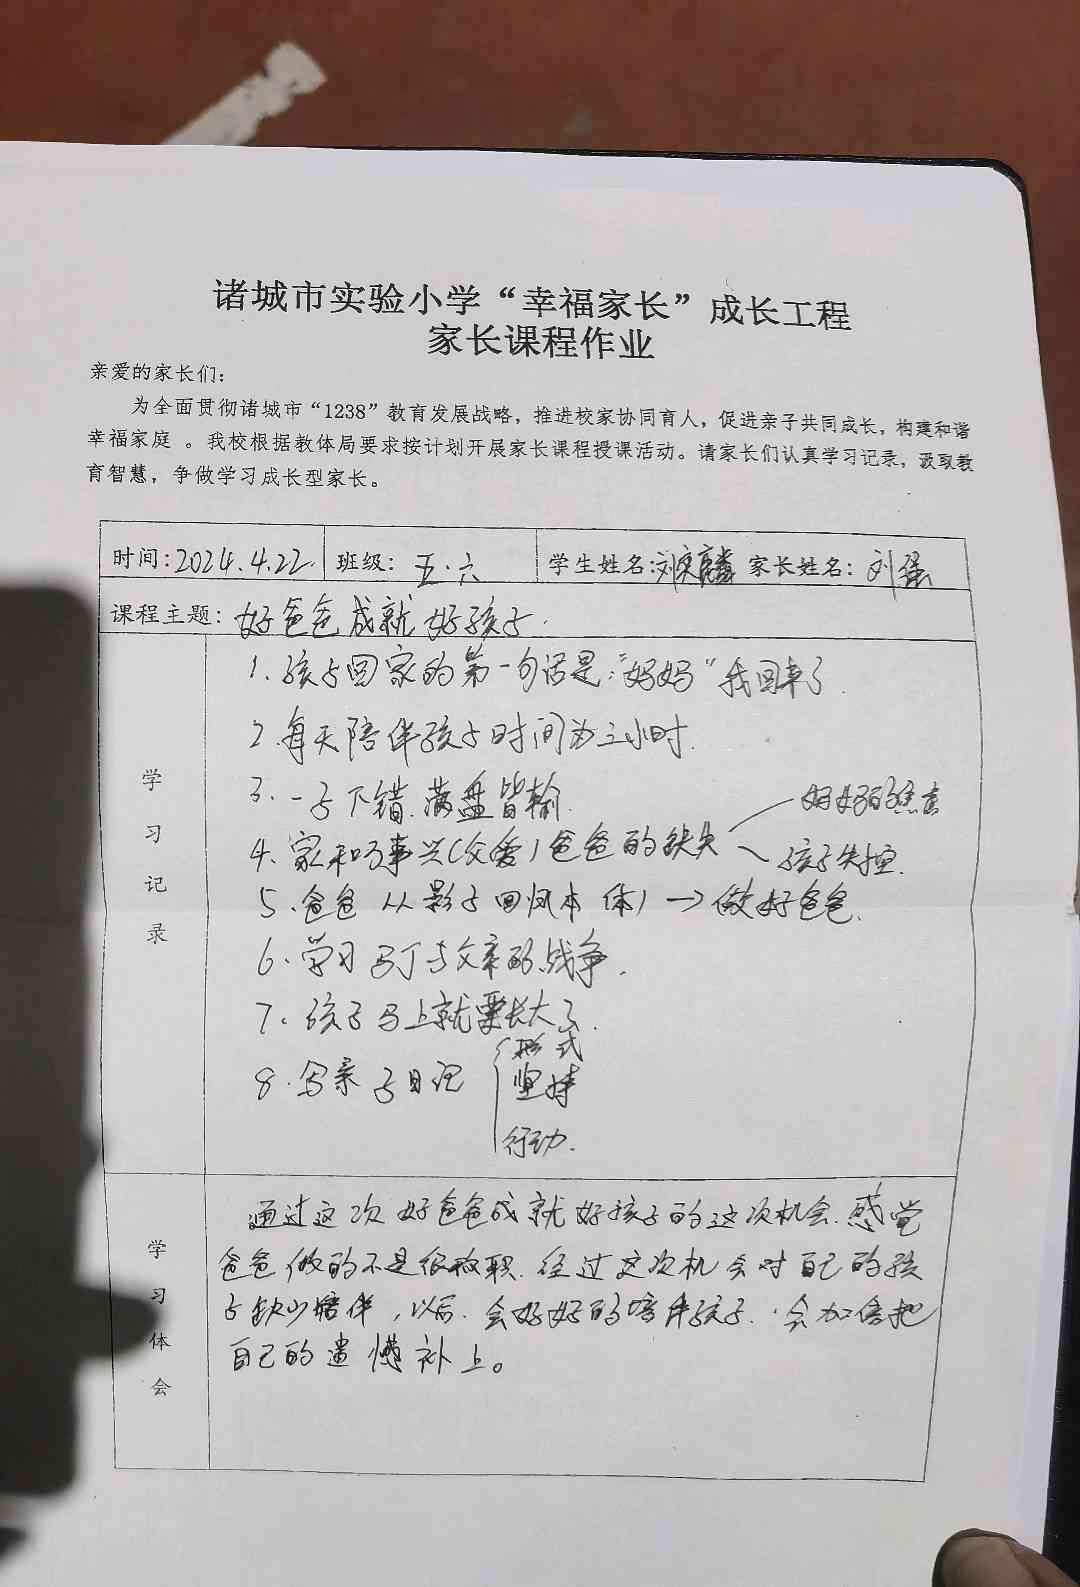 诸城市实验小学“幸福家长”成长工程
家长课程作业
亲爱的家长们：
为全面贯彻诸城市“1238”教育发展战略，推进校家协同育人，促进亲子共同成长，构建和谐
幸福家庭 。我校根据教体局要求按计划开展家长课程授课活动。请家长们认真学习记录，汲取教
育智慧，争做学习成长型家长。
时间：2024.4.22. 班级：五.六 学生姓名：刘 家长姓名：刘强
课程主题：好爸爸成就好孩子.
学习记录
1.孩子回家的第一句话是：“妈妈”我回来了.
2.每天陪伴孩子时间为三小时.
3.一子下错.满盘皆输.
4.家和万事兴(父爱)爸爸的缺失 妈妈的焦虑
孩子失控.
5.爸爸 从影子回归本体)→做好爸爸.
6.学习 与父亲的战争.
7.孩子马上就要长大了.
8.写亲子日记 形式
坚持
行动.
学习体会
通过这次 好爸爸成就好孩子的这次机会.感觉
爸爸做的不是很称职.经过这次机会对自己的孩
子缺少陪伴，以后.会好好的陪伴孩子.会加倍把
自己的遗憾补上。